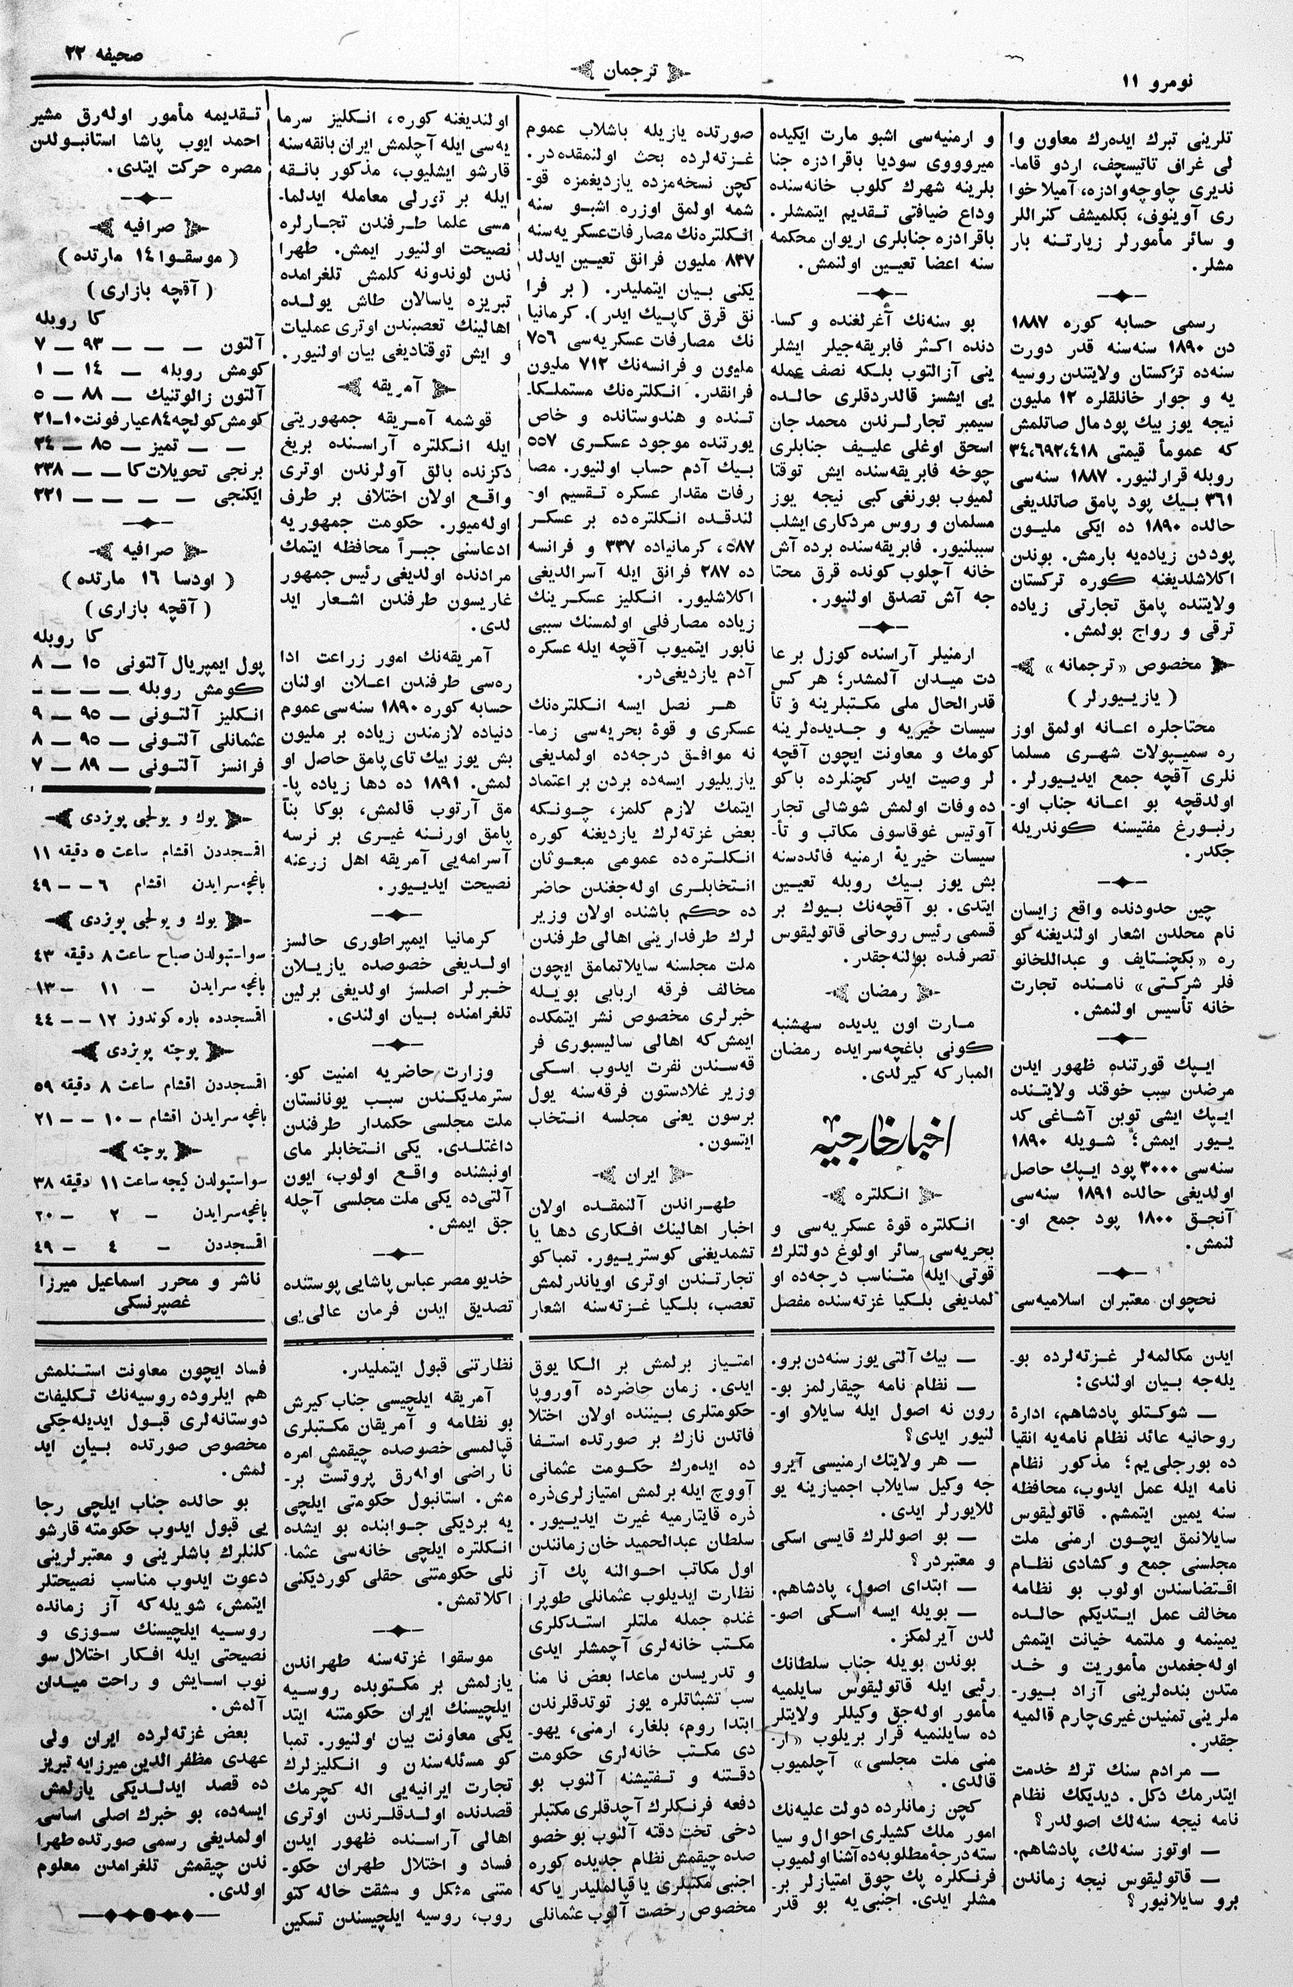 نومرو ۱۱
ترجمان
صحیفه ۲۲
تلرینی تبرك ایدەرك معاون وا
لی غراف تاتیسچف، اردو قاما-
ندیری چاوچه‌وادزه، آمیلا خوا
ری آوینوف، بكلمیشف كنراللر
و سائر مأمورلر زیارتنه بار
مشلر.
رسمی حسابه كوره ۱۸۸۷
دن ۱۸۹۰ سنه‌سنه قدر دورت
سنه‌ده تركستان ولایتندن روسیه
یه و جوار خانلقلره ۱۲ ملیون
نیجه یوز بیك پود مال صاتلمش
كه عموماً قیمتی ۳٤،٦۹۲،٤۱۸
روبله قرارلنیور. ۱۸۸۷ سنه‌سی
۳٦۱ بیك پود پامق صاتلدیغی
حالده ۱۸۹۰ ده ایكی ملیون
پوددن زیاده‌یه بارمش. بوندن
اكلاشلدیغنه كوره تركستان
ولایتنده پامق تجارتی زیاده
ترقی و رواج بولمش.
مخصوص «ترجمانه»
( یازییورلر )
محتاجلره اعانه اولمق اوز
ره سمیپولات شهری مسلما
نلری آقچه جمع ایدییورلر.
اولدقچه بو اعانه جناب او-
رنبورغ مفتیسنه كوندریله
جكدر.
چین حدودنده واقع زایسان
نام محلدن اشعار اولندیغنه كو
ره «بكچنتایف و عبداللخانو
فلر شركتی» نامنده تجارت
خانه تأسیس اولنمش.
ایپك قورتنده ظهور ایدن
مرضدن سبب خوقند ولایتنده
ایپك ایشی توبن آشاغی كد
ییور ایمش؛ شویله ۱۸۹۰
سنه‌سی ۳۰۰۰ پود ایپك حاصل
اولدیغی حالده ۱۸۹۱ سنه‌سی
آنجق ۱۸۰۰ پود جمع او-
لنمش.
نخچوان معتبران اسلامیه‌سی
و ارمنیه‌سی اشبو مارت ایكیده
میرووووی سودیا باقرادزه جنا
بلرینه شهرك كلوب خانه‌سنده
وداع ضیافتی تقدیم ایتمشلر.
باقرادزه جنابلری اریوان محكمه
سنه اعضا تعیین اولنمش.
بو سنه‌نك آغرلغنده و كسا-
دنده اكثر فابریقه‌جیلر ایشلر
ینی آزالتوب بلكه نصف عمله
یی ایشسز قالدردقلری حالده
سیمبر تجارلرندن محمد جان
اسحق اوغلی علییف جنابلری
چوخه فابریقه‌سنده ایش توقتا
لمیوب بورنغی كبی نیجه یوز
مسلمان و روس مردكاری ایشلب
سببلنیور. فابریقه‌سنده برده آش
خانه آچلوب كونده قرق محتا
جه آش تصدق اولنیور.
ارمنیلر آراسنده كوزل بر عا
دت میدان آلمشدر؛ هر كس
قدرالحال ملی مكتبلرینه و تأ
سیسات خیریه و جدیده‌لرینه
كومك و معاونت ایچون آقچه
لر وصیت ایدر كچنلرده باكو
ده وفات اولمش شوشالی تجار
آوتیس غوقاسوف مكاتب و تأ-
سیسات خیریهٔ ارمنیه فائده‌سنه
بش یوز بیك روبله تعیین
ایتدی. بو آقچه‌نك بیوك بر
قسمی رئیس روحانی قاتولیقوس
تصرفنده بولنه‌جقدر.
رمضان
مارت اون یدیده سهشنبه
كونی باغچه‌سرایده رمضان
المباركه كیرلدی.
اخبار خارجیه
انكلتره
انكلتره قوهٔ عسكریه‌سی و
بحریه‌سی سائر اولوغ دولتلرك
قوتی ایله متناسب درجه‌ده او
لمدیغی بلكیا غزته‌سنده مفصل
صورتده یازیله باشلاب عموم
غزته‌لرده بحث اولنمقده‌در.
كچن نسخه‌مزده یازدیغمزه قو-
شمه اولمق اوزره اشبو سنه
انكلتره‌نك مصارفات عسكریه‌سنه
۸۳۷ ملیون فرانق تعیین ایدلد
یكنی بیان ایتملیدر. ( بر فرا
نق قرق كاپیك ایدر ). كرمانیا
نك مصارفات عسكریه‌سی ۷۵٦
ملیون و فرانسه‌نك ۷۱۲ ملیون
فرانقدر. انكلتره‌نك مستملكا-
تنده و هندوستانده و خاص
یورتنده موجود عسكری ۵۵۷
بیك آدم حساب اولنیور. مصا
رفات مقدار عسكره تقسیم او-
لندقده انكلتره‌ده بر عسكر
۵۸۷، كرمانیاده ۳۳۷ و فرانسه
ده ۲۸۷ فرانق ایله آسرالدیغی
اكلاشلیور. انكلیز عسكرینك
زیاده مصارفلی اولمسنك سببی
نابور ایتمیوب آقچه ایله عسكره
آدم یازدیغی‌در.
هر نصل ایسه انكلتره‌نك
عسكری و قوهٔ بحریه‌سی زما-
نه موافق درجه‌ده اولمدیغی
یازیلیور ایسه‌ده بردن بر اعتماد
ایتمك لازم كلمز، چونكه
بعض غزته‌لرك یازدیغنه كوره
انكلتره‌ده عمومی مبعوثان
انتخابلری اوله‌جغندن حاضر
ده حكم باشنده اولان وزیر
لرك طرفدارینی اهالی طرفندن
ملت مجلسنه سایلاتمامق ایچون
مخالف فرقه اربابی بویله
خبرلری مخصوص نشر ایتمكده
ایمش‌كه اهالی سالیسبوری فر
قه‌سندن نفرت ایدوب اسكی
وزیر غلادستون فرقه‌سنه یول
برسون یعنی مجلسه انتخاب
ایتسون.
ایران
طهراندن آلنمقده اولان
اخبار اهالینك افكاری دها یا
تشمدیغنی كوستریيور. تمباكو
تجارتندن اوتری اویاندرلمش
تعصب، بلكیا غزته‌سنه اشعار
اولندیغنه كوره، انكلیز سرما
یه‌سی ایله آچلمش ایران بانقه‌سنه
قارشو ایشلیوب، مذكور بانقه
ایله بر تورلی معامله ایدلما-
مسی علما طرفندن تجارلره
نصیحت اولنیور ایمش. طهرا
ندن لوندونه كلمش تلغرامده
تبریزه یاسالان طاش یولده
اهالینك تعصبندن اوتری عملیات
و ایش توقتادیغی بیان اولنیور.
آمریقه
قوشمه آمریقه جمهوریتی
ایله انكلتره آراسنده بریغ
دكزنده بالق آولرندن اوتری
واقع اولان اختلاف بر طرف
اوله‌میور. حكومت جمهوریه
ادعاسنی جبراً محافظه ایتمك
مرادنده اولدیغی رئیس جمهور
غاریسون طرفندن اشعار اید
لدی.
آمریقه‌نك امور زراعت ادا
ره‌سی طرفندن اعلان اولنان
حسابه كوره ۱۸۹۰ سنه‌سی عموم
دنیاده لازمندن زیاده بر ملیون
بش یوز بیك تای پامق حاصل او
لمش. ۱۸۹۱ ده دها زیاده پا-
مق آرتوب قالمش، بوكا بنآ
پامق اورنـنه غیری بر نرسه
آسرامه‌یی آمریقه اهل زرعنه
نصیحت ایدییور.
كرمانیا ایمپراطوری حالسز
اولدیغی خصوصده یازیلان
خبرلر اصلسز اولدیغی برلین
تلغرامنده بیان اولندی.
وزارت حاضریه امنیت كو-
سترمدیكندن سبب یونانستان
ملت مجلسی حكمدار طرفندن
داغتلدی. یكی انتخابلر مای
اونبشنده واقع اولوب، ایون
آلتی‌ده یكی ملت مجلسی آچله
جق ایمش.
خدیو مصر عباس پاشایی پوستنده
تصدیق ایدن فرمان عالی‌یی
تقدیمه مأمور اوله‌رق مشیر
احمد ایوب پاشا استانبولدن
مصره حركت ایتدی.
صرافیه
( موسقوا ۱٤ مارتده )
( آقچه بازاری )
كا روبله
آلتون — — — ۹۳ — ۷
كومش روبله — ۱٤ — ۱
آلتون زالوتنیك — ۸۸ — ۵
كومش كولچه ۸٤ عیار فونت ۱۰-۲۱
— — تمیز — ۸۵ — ۲٤
برنجی تحویلات كا — — ۲۳۸
ایكنجی — — — — ۲۲۱
صرافیه
( اودسا ۱٦ مارتده )
( آقچه بازاری )
كا روبله
پول ایمپریال آلتونی ۱۵ — ۸
كومش روبله — — — —
انكلیز آلتونی — ۹۵ — ۹
عثمانلی آلتونی — ۹۵ — ۸
فرانسز آلتونی — ۸۹ — ۷
یوك و یولجی پویزدی
اقمسجددن اقشام ساعت ۵ دقیقه ۱۱
باغچه‌سرایدن اقشام ٦ — — ٤۹
یوك و یولجی پویزدی
سواستپولدن صباح ساعت ۸ دقیقه ٤۳
باغچه‌سرایدن — ۱۱ — ۱۳
اقمسجدده باره كوندوز ۱۲ — — ٤٤
پوچته پویزدی
اقمسجددن اقشام ساعت ۸ دقیقه ۵۹
باغچه‌سرایدن اقشام — ۱۰ — — ۲۱
پوچته
سواستپولدن كیجه ساعت ۱۱ دقیقه ۳۸
باغچه‌سرایدن — ۲ — ۲۰
اقمسجددن — ٤ — ٤۹
ناشر و محرر اسماعیل میرزا
غصپرنسكی
ایدن مكالمه‌لر غزته‌لرده بو-
یله‌جه بیان اولندی:
— شوكتلو پادشاهم، ادارهٔ
روحانیه عائد نظام نامه‌یه انقیا
ده بورجلی‌یم؛ مذكور نظام
نامه ایله عمل ایدوب، محافظه
سنه یمین ایتمشم. قاتولیقوس
سایلانمق ایچون ارمنی ملت
مجلسنی جمع و كشادی نظام
اقتضاسندن اولوب بو نظامه
مخالف عمل ایتدیكم حالده
یمینمه و ملتمه خیانت ایتمش
اوله‌جغمدن مأموریت و خد
متدن بنده‌لرینی آزاد بیور-
ملرینی تمنیدن غیری چارم قالمیه
جقدر.
— مرادم سنك ترك خدمت
ایتدرمك دكل. دیدیكك نظام
نامه نیجه سنه‌لك اصولدر؟
— اوتوز سنه‌لك، پادشاهم.
— قاتولیقوس نیجه زماندن
برو سایلانیور؟
— بیك آلتی یوز سنه‌دن برو.
— نظام نامه چیقارلمز بو-
رون نه اصول ایله سایلاو او-
لنیور ایدی؟
— هر ولایتك ارمنیسی آیرو
جه وكیل سایلاب اجمیازینه یو
للایورلر ایدی.
— بو اصوللرك قایسی اسكی
و معتبردر؟
— ابتدای اصول، پادشاهم.
— بویله ایسه اسكی اصو-
لدن آیرلمكز.
بوندن بویله جناب سلطانك
رئیی ایله قاتولیقوس سایلمیه
مأمور اوله‌جق وكیللر ولایتلر
ده سایلنمیه قرار بریلوب «ار-
منی ملت مجلسی» آچلمیوب
قالدی.
كچن زمانلرده دولت علیه‌نك
امور ملك كشیلری احوال و سیا
سته درجهٔ مطلوبه‌ده آشنا اولمیوب
فرنكلره پك چوق امتیازلر بر-
مشلر ایدی. اجنبی‌یه بو قدر
امتیاز برلمش بر الكا یوق
ایدی. زمان حاضرده آوروپا
حكومتلری بیننده اولان اختلا
فاتدن نازك بر صورتده استفا
ده ایدەرك حكومت عثمانی
آووچ ایله برلمش امتیازلری ذره
ذره قایتارمیه غیرت ایدییور.
سلطان عبدالحمید خان زمانندن
اول مكاتب احوالنه پك آز
نظارت ایدیلوب عثمانلی طوپرا
غنده جمله ملتلر استدكلری
مكتب خانه‌لری آچمشلر ایدی
و تدریسدن ماعدا بعض نا منا
سب تشبثاتلره یوز توتدقلرندن
ابتدا روم، بلغار، ارمنی، یهو-
دی مكتب خانه‌لری حكومت
دقتنه و تفتیشنه آلنوب بو
دفعه فرنكلرك آچدقلری مكتبلر
دخی تحت دقته آلنوب بو خصو
صده چیقمش نظام جدیده كوره
اجنبی مكتبلری یا قپالملیدر یا كه
مخصوص رخصت آلوب عثمانلی
نظارتنی قبول ایتملیدر.
آمریقه ایلچیسی جناب كیرش
بو نظامه و آمریقان مكتبلری
قپالمسی خصوصده چیقمش امره
نا راضی اوله‌رق پروتست بر-
مش. استانبول حكومتی ایلچی
یه بردیكی جوابنده بو ایشده
انكلتره ایلچی خانه‌سی عثما-
نلی حكومتنی حقلی كوردیكنی
اكلاتمش.
موسقوا غزته‌سنه طهراندن
یازلمش بر مكتوبده روسیه
ایلچیسنك ایران حكومتنه ایتد
یكی معاونت بیان اولنیور. تمبا
كو مسئله‌سندن و انكلیزلرك
تجارت ایرانیه‌یی اله كچرمك
قصدنده اولدقلرندن اوتری
اهالی آراسنده ظهور ایدن
فساد و اختلال طهران حكو-
متنی مشكل و مشقت حاله كتو
روب، روسیه ایلچیسندن تسكین
فساد ایچون معاونت استنلمش
هم ایلروده روسیه‌نك تكلیفات
دوستانه‌لری قبول ایدیله‌جكی
مخصوص صورتده بیان اید
لمش.
بو حالده جناب ایلچی رجا
یی قبول ایدوب حكومته قارشو
كلنلرك باشلرینی و معتبرلرینی
دعوت ایدوب مناسب نصیحتلر
ایتمش، شویله‌كه آز زمانده
روسیه ایلچیسنك سوزی و
نصیحتی ایله افكار اختلال سو
نوب اسایش و راحت میدان
آلمش.
بعض غزته‌لرده ایران ولی
عهدی مظفر الدین میرزایه تبریز
ده قصد ایدلدیكی یازلمش
ایسه‌ده، بو خبرك اصلی اساسی
اولمدیغی رسمی صورتده طهرا
ندن چیقمش تلغرامدن معلوم
اولدی.